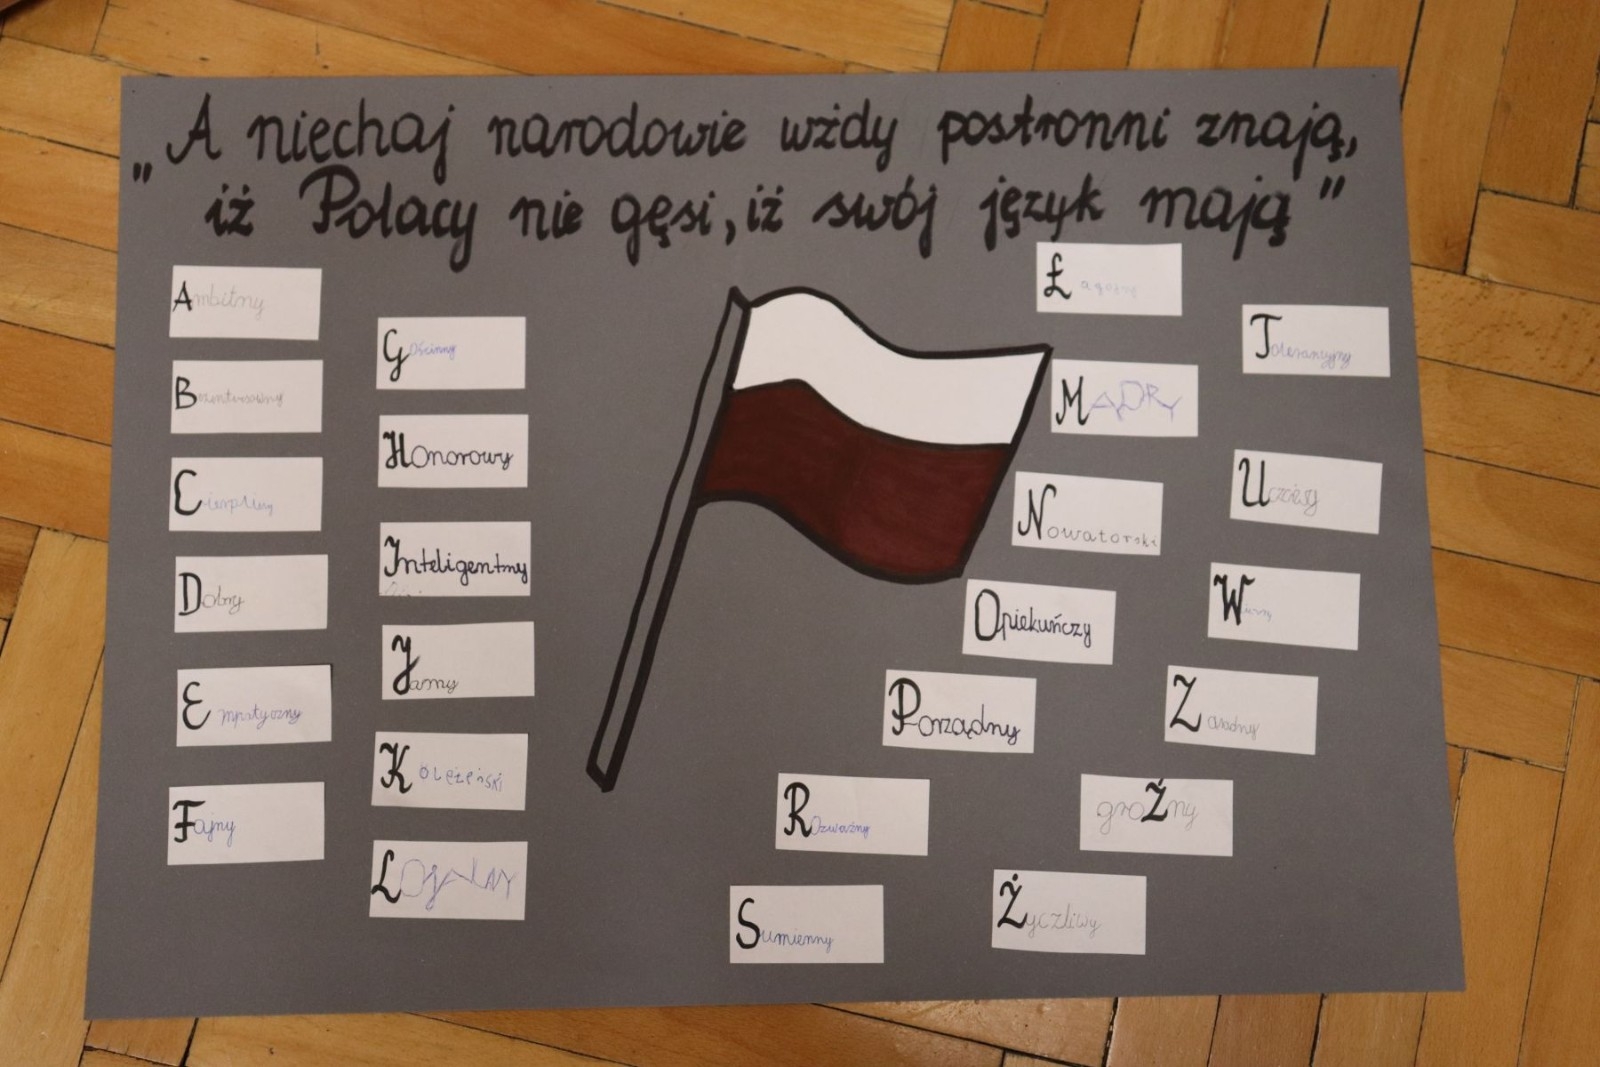 „A niechaj narodowie wżdy postronni znają,
iż Polacy nie gęsi, iż swój język mają”
Ambitny
Cierpliwy
Dobry
Empatyczny
Fajny
Gościnny
Honorowy
Inteligentny
Jasny
Koleżeński
LOJALNY
Łagodny
MĄDRY
Nowatorski
Opiekuńczy
Porządny
Rozważny
Sumienny
Tolerancyjny
Uczciwy
Wierny
Zaradny
groŹny
Życzliwy